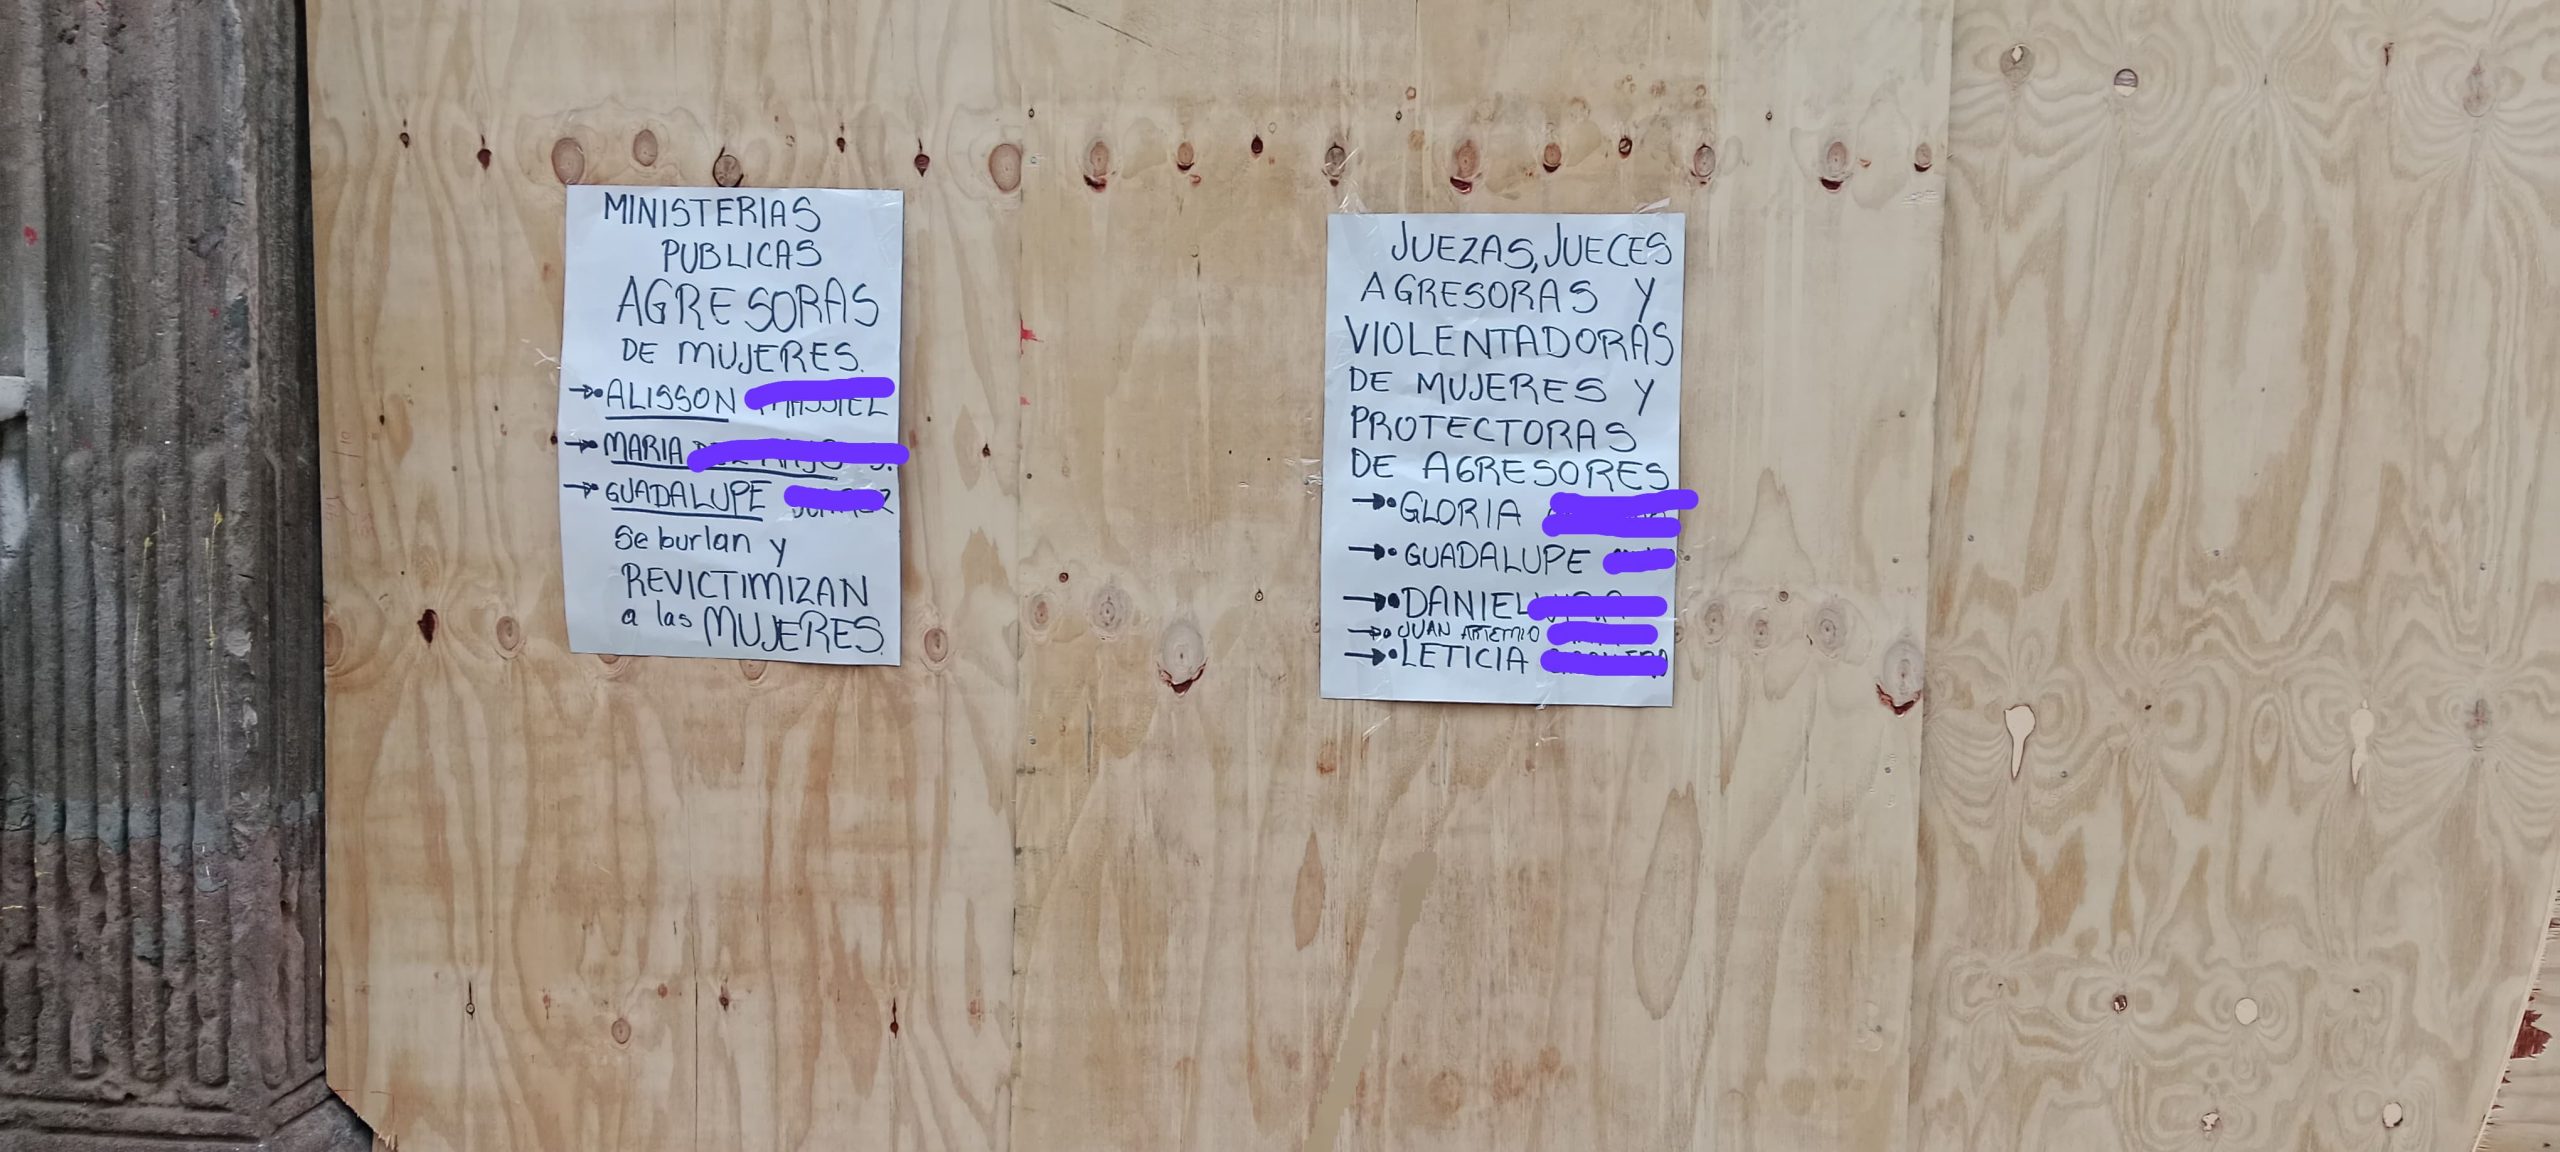 MINISTERIAS
PUBLICAS
AGRESORAS
DE MUJERES.
ALISSON
MARIA
GUADALUPE
Se burlan y
REVICTIMIZAN
a las MUJERES.
JUEZAS, JUECES
AGRESORAS Y
VIOLENTADORAS
DE MUJERES Y
PROTECTORAS
DE AGRESORES
GLORIA
GUADALUPE
DANIEL
JUAN ARTEMIO
LETICIA